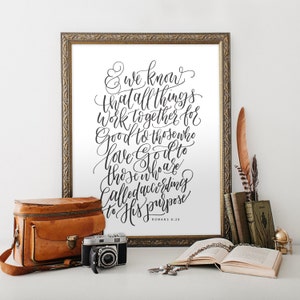 & we know
that all things
work together for
Good to those who
love God to
those who are
called according
to His purpose
ROMANS 8:28